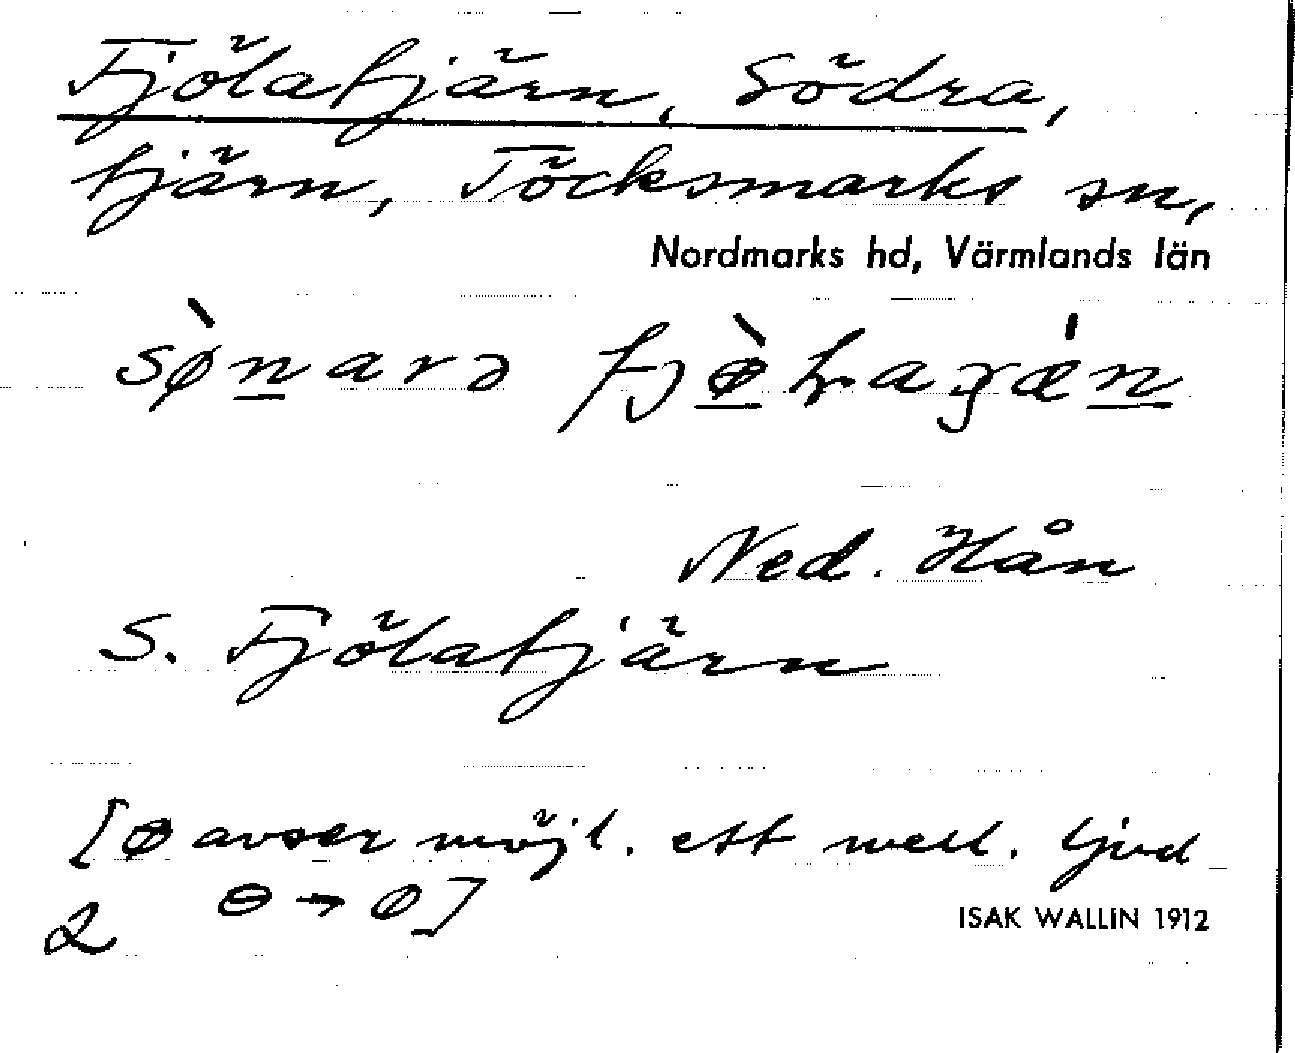 Fjölatjärn, Södra,
tjärn, Töcksmarks sn,
Nordmarks hd, Värmlands län
Ned. Hån
S. Fjölatjärn
[ø avser möjl. ett mell. ljud
ɵ → ø]
2
ISAK WALLIN 1912